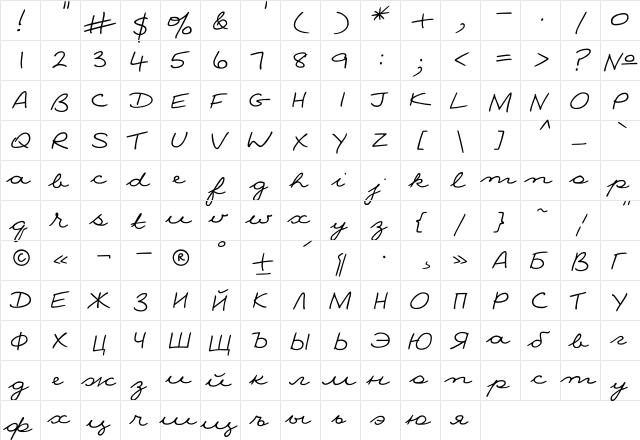 ! " # $ % & ' ( ) * + , – · / 0
1 2 3 4 5 6 7 8 9 : ; < = > ? №
A B C D E F G H I J K L M N O P
Q R S T U V W X Y Z [ \ ] ^ _ `
a b c d e f g h i j k l m n o p
q r s t u v w x y z { / } ~ ¦ "
© « ¬ — ® ° ± ´ ¶ · ¸ » А Б В Г
D Е Ж З И Й К Л М Н О П Р С Т У
Ф Х Ц Ч Ш Щ Ъ Ы Ь Э Ю Я а б в г
д е ж з и й к л м н о п р с т у
ф х ц ч ш щ ъ ы ь э ю я